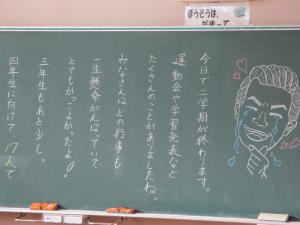 ほうそうは、
だまって
今日で二学期が終わります。
運動会や学習発表など
たくさんのことがありましたね。
みなさんは、どの行事も
一生懸命がんばっていて
とてもかっこよかったよ!
三年生もあと少し。
四年生に向けて 17人で